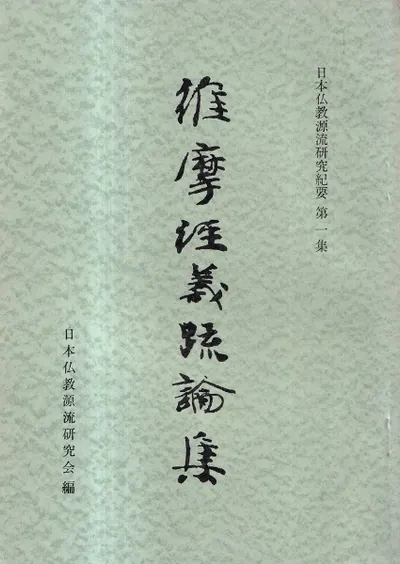 日本仏教源流研究紀要 第一集
維摩経義疏論集
日本仏教源流研究会編